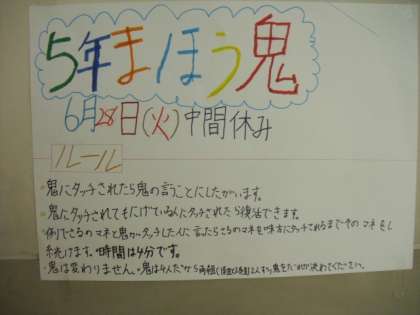 5年まほう鬼
6月28日(火)中間休み
ルール
・鬼にタッチされたら鬼の言うことにしたがいます。
・鬼にタッチされてもにげている人にタッチされたら復活できます。
・例でさるのマネと鬼がタッチした人に言ったらさるのマネを味方にタッチされるまでそのマネをし
続けます。・時間は4分です。
・鬼は変わりません。・鬼は4人だから両組
鬼をだれか決めてください。